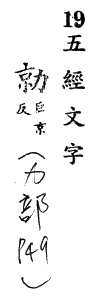 19五經文字
勍巨京反（力部P49）